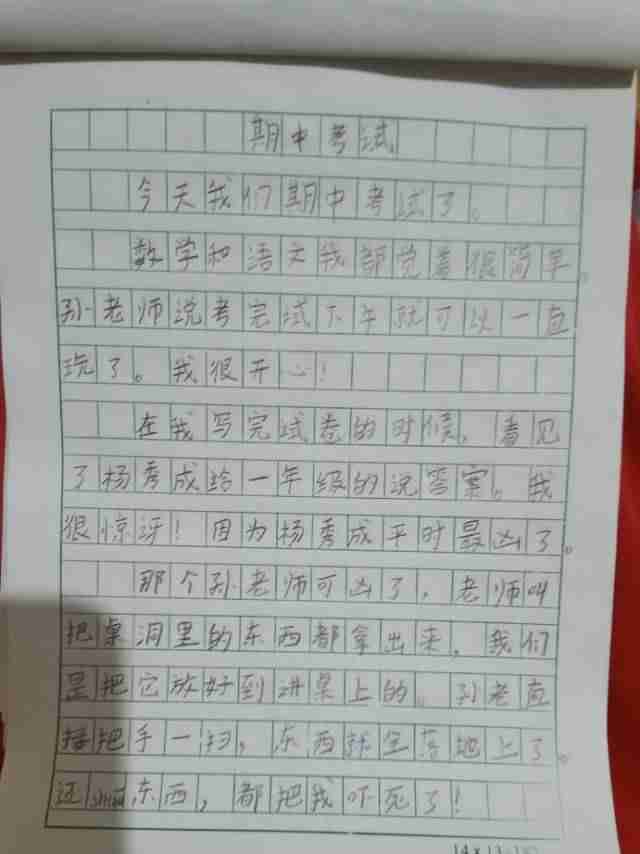 期中考试
今天我们期中考试了。
数学和语文我都觉着很简单。
孙老师说考完试下午就可以一直
玩了。我很开心!
在我写完试卷的时候,看见
了杨秀成给一年级的说答案。我
很惊讶!因为杨秀成平时最凶了。
那个孙老师可凶了,老师叫
把桌洞里的东西都拿出来,我们
是把它放好到讲桌上的。孙老直
接把手一扫,东西就全落地上了。
还shuai东西,都把我吓死了!